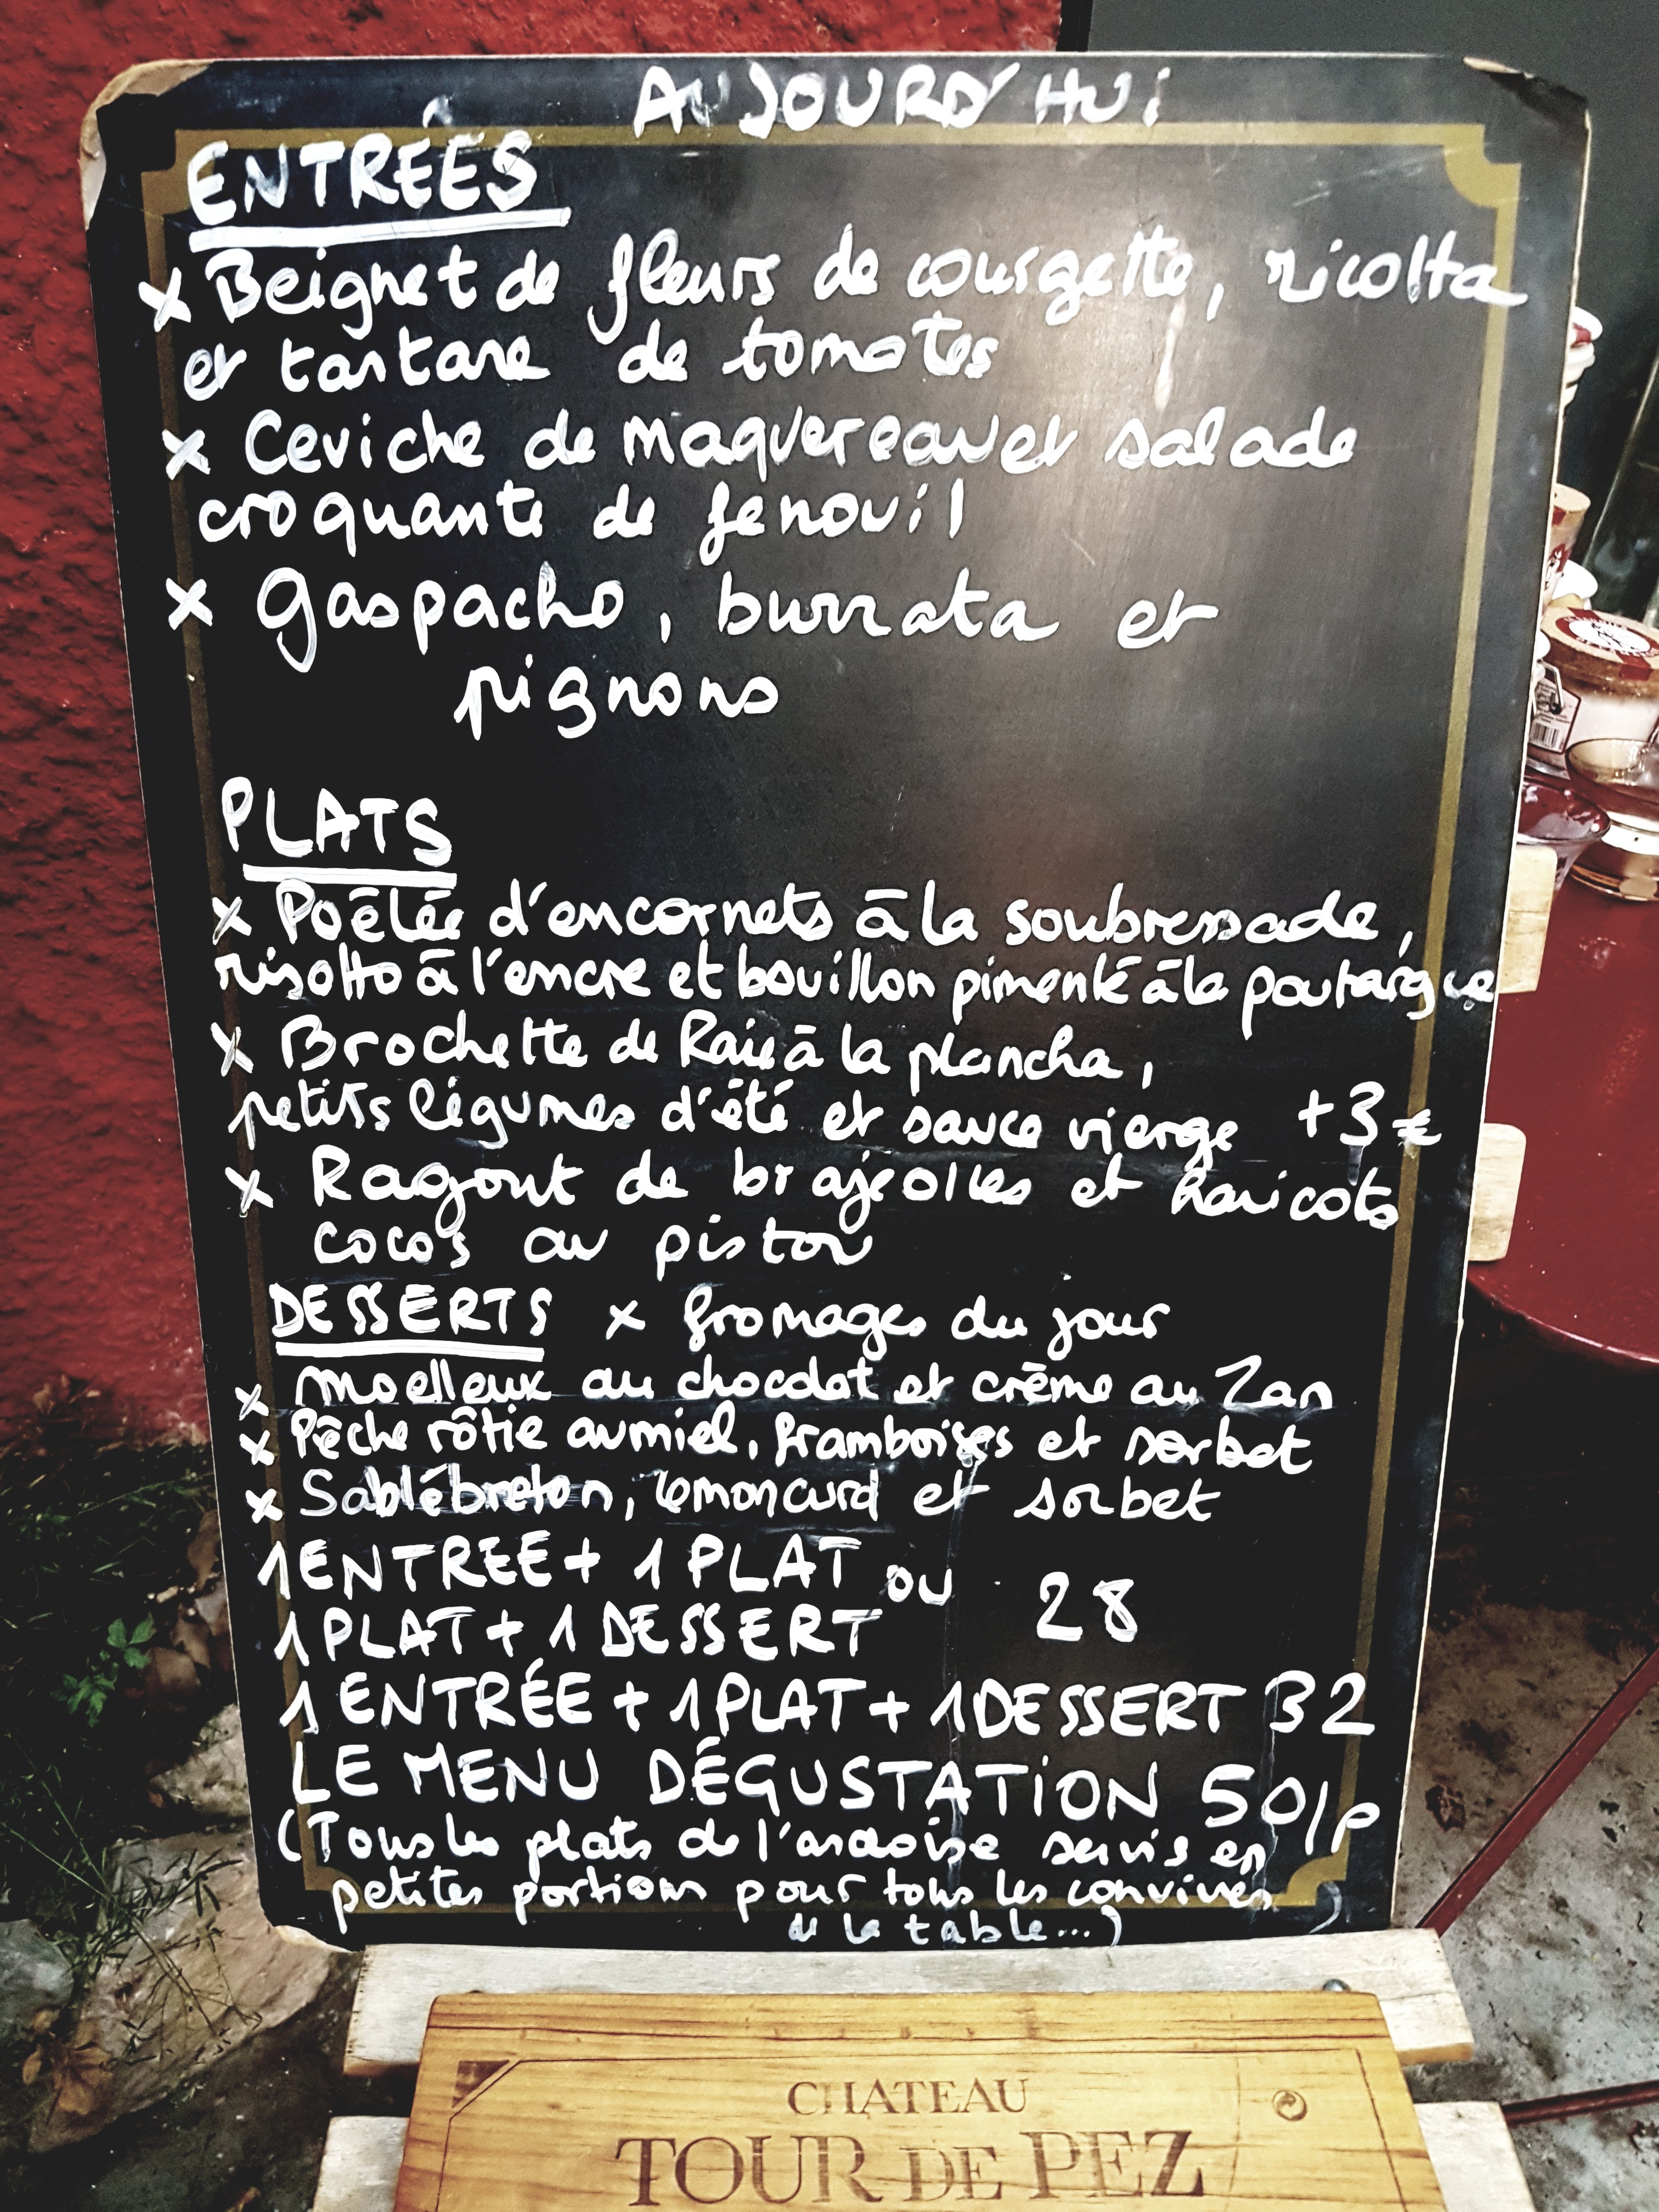 AUJOURD'HUi
ENTRÉES
x Beignet de fleurs de courgette, ricotta
et tartare de tomates
x Ceviche de maquereau et salade
croquante de fenouil
x gaspacho, burrata et
pignons
PLATS
x Poêlée d'encornets à la soubressade,
risotto à l'encre et bouillon pimenté à la poutargue
x Brochette de Raie à la plancha,
petits légumes d'été et sauce vierge +3€
x Ragout de brajeolles et haricots
cocos au pistou
DESSERTS x fromages du jour
x moelleux au chocolat et crème au Zan
x Pêche rôtie au miel, framboises et sorbet
x Sablé breton, lemoncurd et sorbet
1 ENTREE + 1 PLAT ou 28
1 PLAT + 1 DESSERT
1 ENTRÉE + 1 PLAT + 1 DESSERT 32
LE MENU DÉGUSTATION 50/p
(Tous les plats de l'ardoise servis en
petites portions pour tous les convives
de la table...)
CHATEAU
TOUR DE PEZ